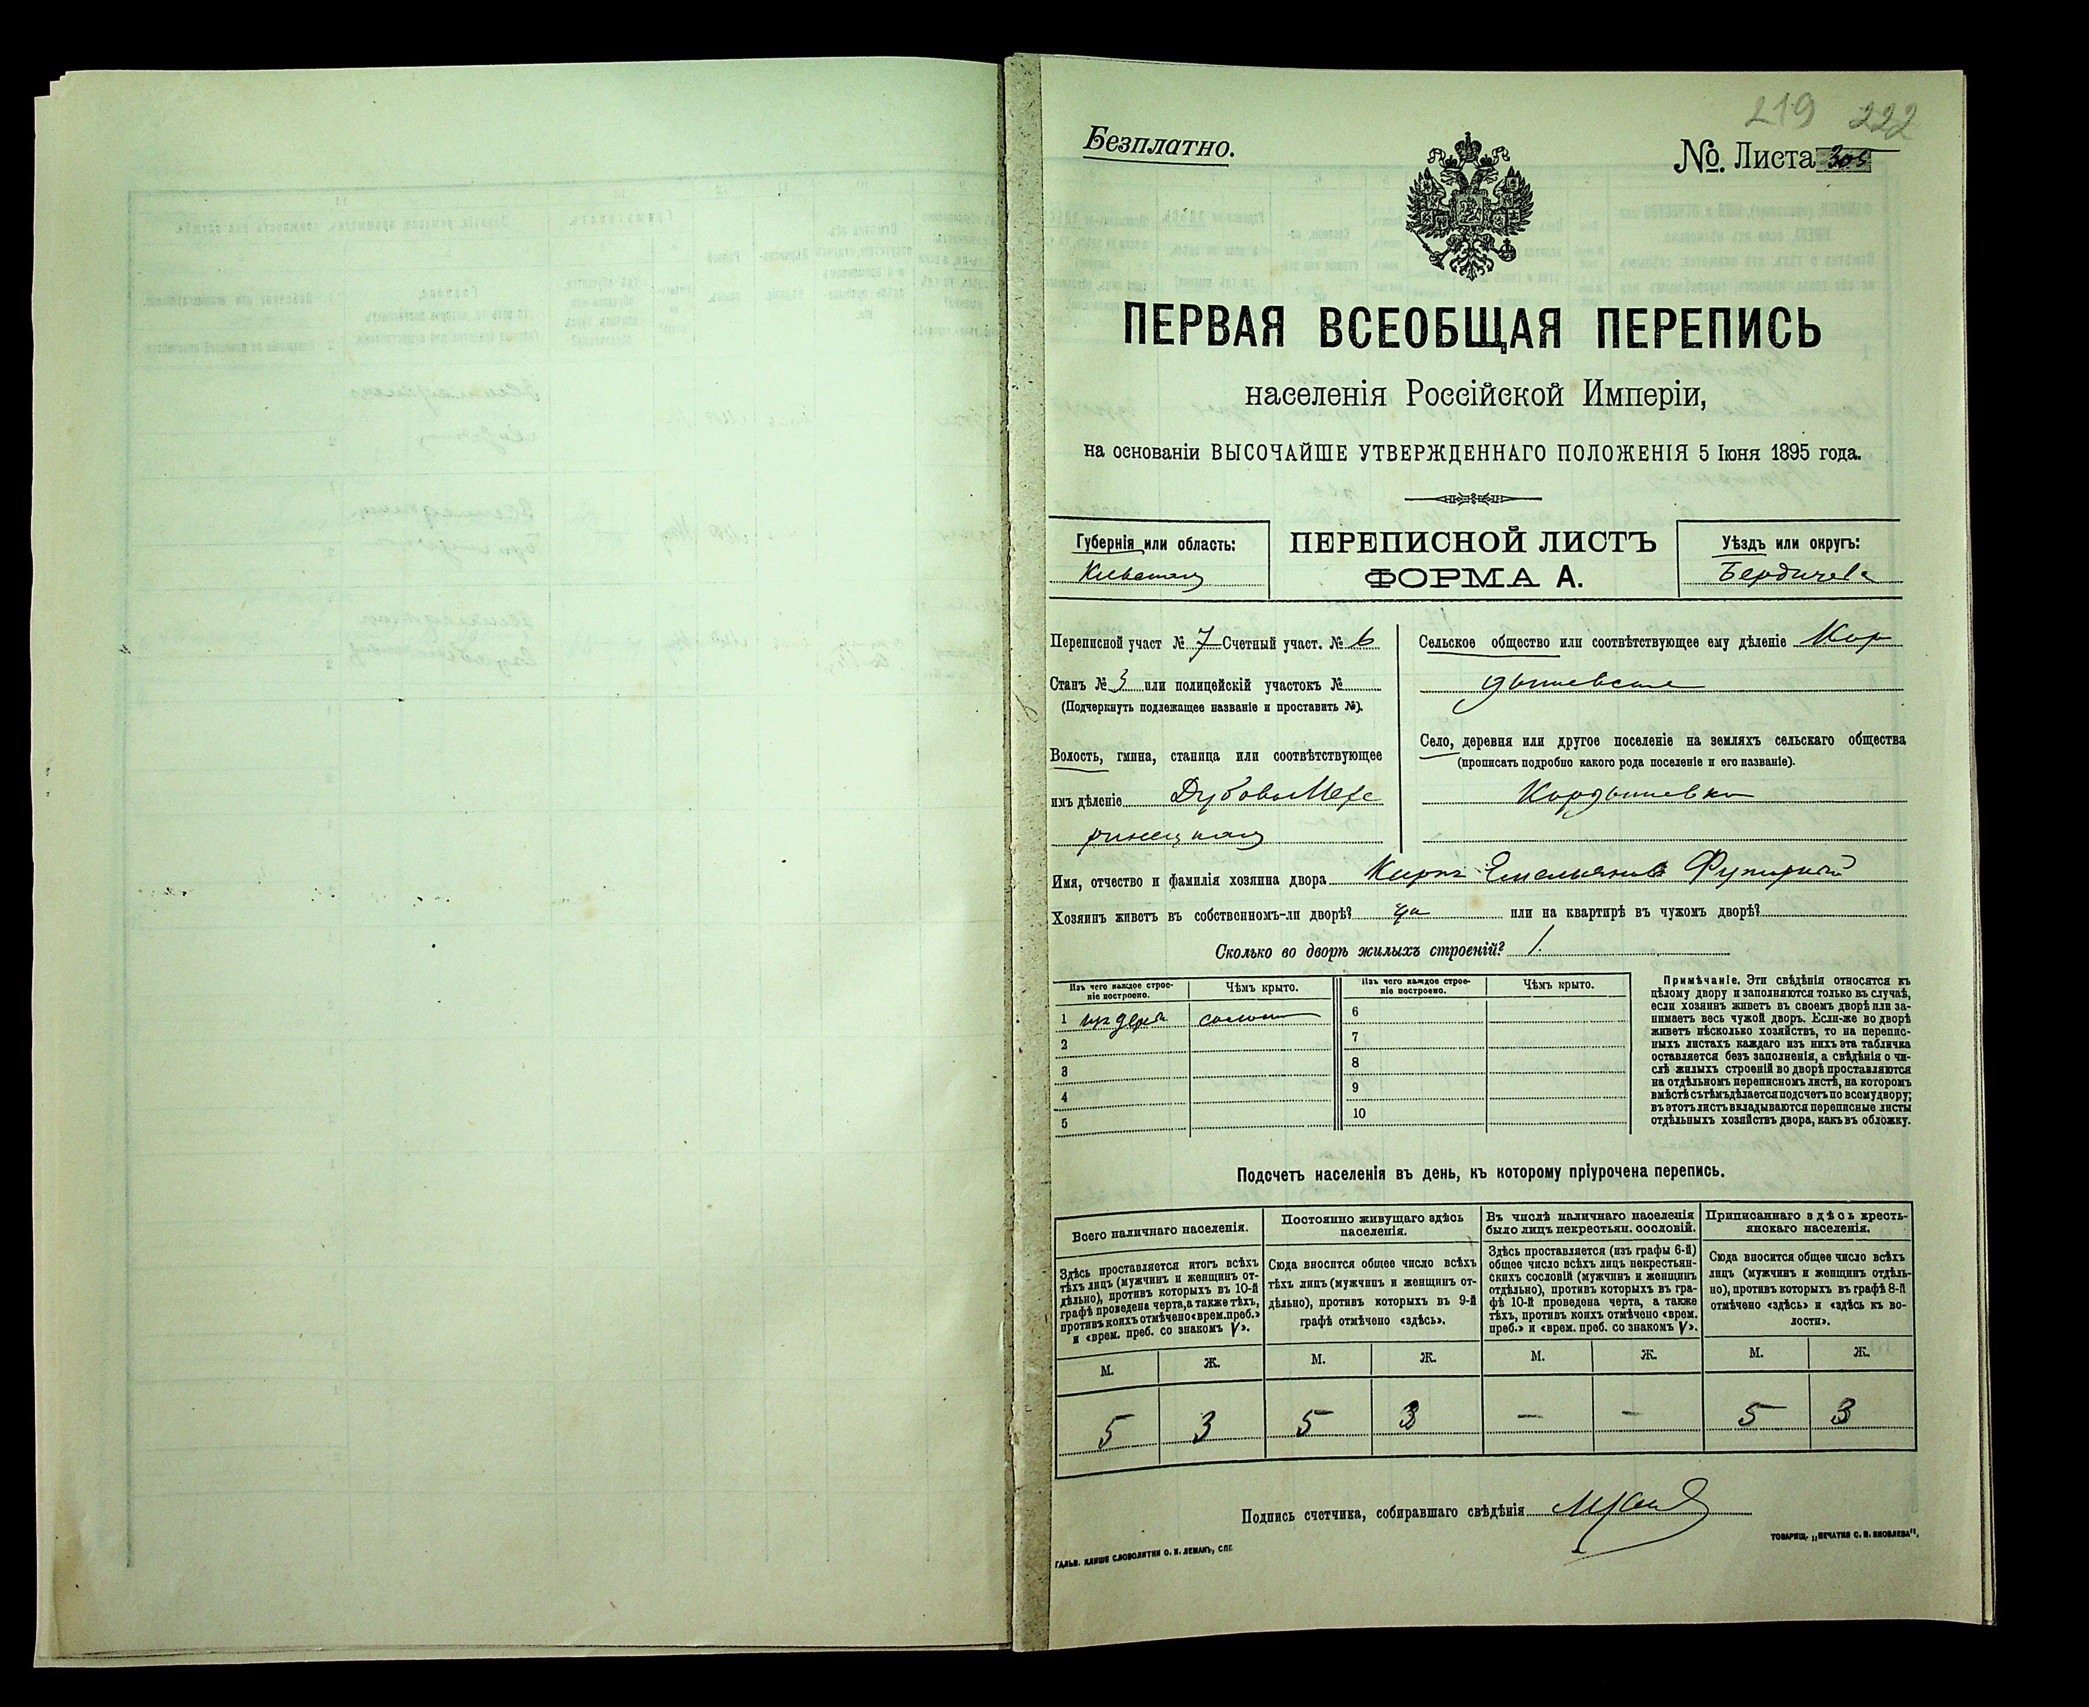 219 222
Безплатно.
№. Листа 305
ПЕРВАЯ ВСЕОБЩАЯ ПЕРЕПИСЬ
населенія Россійской Имперіи,
на основаніи ВЫСОЧАЙШЕ УТВЕРЖДЕННАГО ПОЛОЖЕНІЯ 5 Іюня 1895 года.
Губернія или область:
Киевская
ПЕРЕПИСНОЙ ЛИСТЪ
ФОРМА А.
Уѣздъ или округъ:
Бердичев
Переписной участ № 7 Счетный участ. № 6
Станъ № 3 или полицейскій участокъ №
(Подчеркнуть подлежащее названіе и проставить №).
Волость, гмина, станица или соотвѣтствующее
имъ дѣленіе Дубово Мехе
ринецкая
Сельское общество или соотвѣтствующее ему дѣленіе Кор
дышевское
Село, деревня или другое поселеніе на земляхъ сельскаго общества
(прописать подробно какого рода поселеніе и его названіе).
Кордышевка
Имя, отчество и фамилія хозяина двора Емельянов
Хозяинъ живетъ въ собственномъ-ли дворѣ? да или на квартирѣ въ чужомъ дворѣ?
Сколько во дворѣ жилыхъ строеній? 1.
Изъ чего каждое строе-
ніе построено.
Чѣмъ крыто.
Изъ чего каждое строе-
ніе построено.
Чѣмъ крыто.
1 из дерев солом
2
3
4
5
6
7
8
9
10
Примѣчаніе. Эти свѣдѣнія относятся къ
цѣлому двору и заполняются только въ случаѣ,
если хозяинъ живетъ въ своемъ дворѣ или за-
нимаетъ весь чужой дворъ. Если-же во дворѣ
живетъ нѣсколько хозяйствъ, то на перепис-
ныхъ листахъ каждаго изъ нихъ эта табличка
оставляется безъ заполненія, а свѣдѣнія о чи-
слѣ жилыхъ строеній во дворѣ проставляются
на отдѣльномъ переписномъ листѣ, на которомъ
вмѣстѣ съ тѣмъ дѣлается подсчетъ по всему двору;
въ этотъ листъ вкладываются переписные листы
отдѣльныхъ хозяйствъ двора, какъ въ обложку.
Подсчетъ населенія въ день, къ которому пріурочена перепись.
Всего наличнаго населенія.
Здѣсь проставляется итогъ всѣхъ
тѣхъ лицъ (мужчинъ и женщинъ от-
дѣльно), противъ которыхъ въ 10-й
графѣ проведена черта, а также тѣхъ,
противъ коихъ отмѣчено «врем. преб.»
и «врем. преб. со знакомъ V».
Постоянно живущаго здѣсь
населенія.
Сюда вносится общее число всѣхъ
тѣхъ лицъ (мужчинъ и женщинъ от-
дѣльно), противъ которыхъ въ 9-й
графѣ отмѣчено «здѣсь».
Въ числѣ наличнаго населенія
было лицъ некрестьян. сословій.
Здѣсь проставляется (изъ графы 6-й)
общее число всѣхъ лицъ некрестьян-
скихъ сословій (мужчинъ и женщинъ
отдѣльно), противъ которыхъ въ гра-
фѣ 10-й проведена черта, а также
тѣхъ, противъ коихъ отмѣчено «врем.
преб.» и «врем. преб. со знакомъ V».
Приписаннаго здѣсь кресть-
янскаго населенія.
Сюда вносится общее число всѣхъ
лицъ (мужчинъ и женщинъ отдѣль-
но), противъ которыхъ въ графѣ 8-й
отмѣчено «здѣсь» и «здѣсь къ во-
лости».
М. Ж. М. Ж. М. Ж. М. Ж.
5 3 5 3 — — 5 3
Подпись счетчика, собиравшаго свѣдѣнія
ГАЛЬВ. КЛИШЕ СЛОВОЛИТНИ О. И. ЛЕМАНЪ, СПБ.
ТОВАРИЩ. „ПЕЧАТНЯ С. П. ЯКОВЛЕВА“.